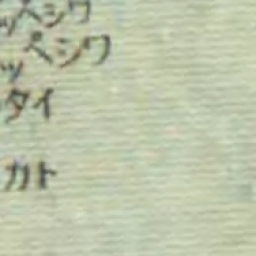 ッペシワ
ッペシワ
タイ
カト